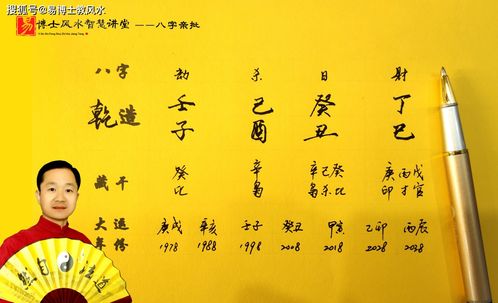 搜狐号@易博士教风水
易 博士风水智慧讲堂 ——八字亲批
Yi Bo Shi Feng Shui Zhi Hui Jiang Tang
八字 劫 杀 日 财
乾造 壬 己 癸 丁
子 酉 丑 巳
藏干 癸 辛 辛己癸 庚丙戊
比 枭 枭杀比 印才官
大运 庚戌 辛亥 壬子 癸丑 甲寅 乙卯 丙辰
年份 1978 1988 1998 2008 2018 2028 2038
然自法道